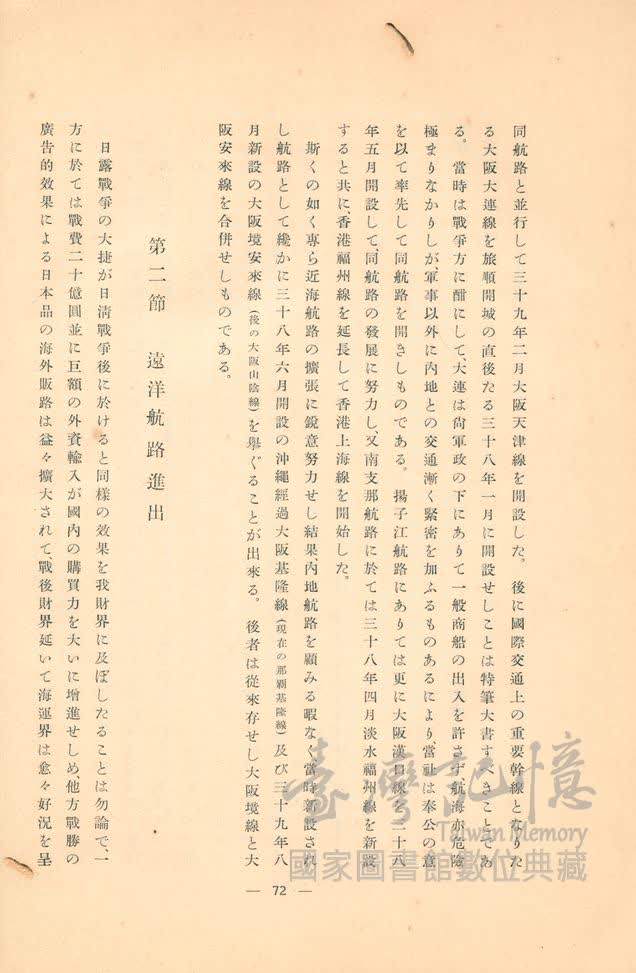 同航路と並行して三十九年二月大阪天津線を開設した。後に國際交通上の重要幹線となりた
る大阪大連線を旅順開城の直後たる三十八年一月に開設せしことは特筆大書すべきことであ
る。當時は戰爭方に酣にして、大連は尙軍政の下にありて一般商船の出入を許さず、航海亦危險
極まりなかりしが、軍事以外に內地との交通漸く緊密を加ふるものあるにより、當社は奉公の意
を以て率先して同航路を開きしものである。揚子江航路にありては更に大阪漢口線を三十八
年五月開設して、同航路の發展に努力し、又南支那航路に於ては三十八年四月淡水福州線を新設
すると共に、香港福州線を延長して香港上海線を開始した。
斯くの如く專ら近海航路の擴張に銳意努力せし結果、內地航路を顧みる暇なく當時新設され
し航路として纔かに三十八年六月開設の沖繩經過大阪基隆線(現在の那覇基隆線)及び三十九年八
月新設の大阪境安來線(後の大阪山陰線)を擧ぐることが出來る。後者は從來存せし大阪境線と大
阪安來線を合併せしものである。
第二節 遠洋航路進出
日露戰爭の大捷が日淸戰爭後に於けると同樣の效果を我財界に及ぼしたることは勿論で、一
方に於ては戰費二十億圓並に巨額の外資輸入が國內の購買力を大いに增進せしめ、他方戰勝の
廣告的效果による日本品の海外販路は益々擴大されて、戰後財界延いて海運界は愈々好況を呈
— 72 —
臺灣記憶
Taiwan Memory
國家圖書館數位典藏